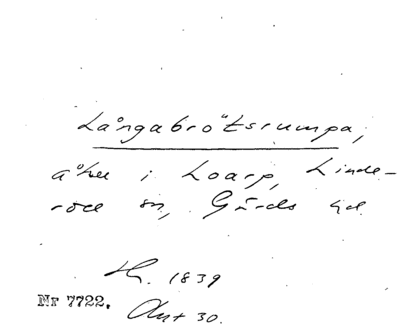 Långabrötsrumpa,
åker i Loarp, Linde-
röd sn, Gärds hd.
Hh. 1839
Nr 7722. Akt 30.